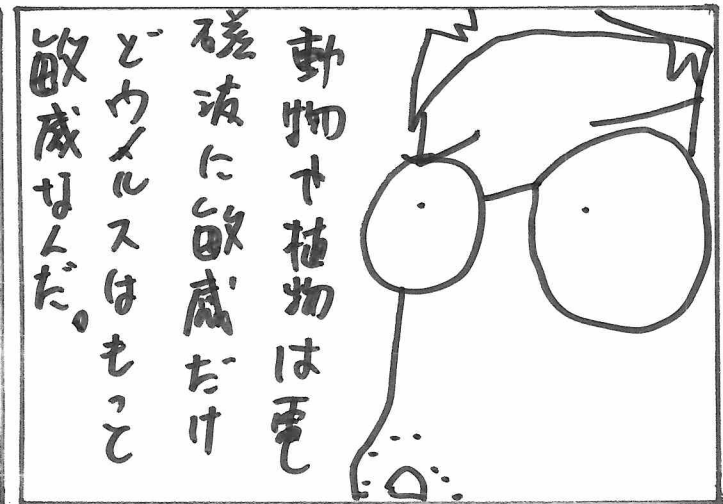 動物や植物は電
磁波に敏感だけ
どウイルスはもっと
敏感なんだ。